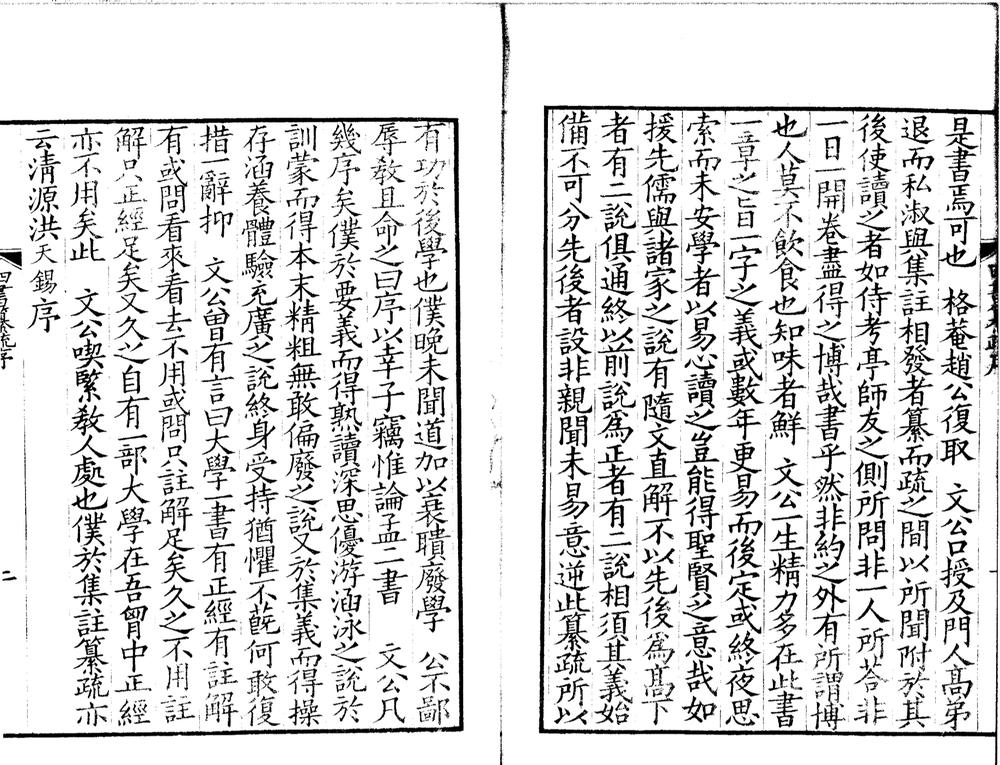 是書焉可也　格菴趙公復取　文公口授及門人高弟
退而私淑與集註相發者纂而疏之間以所聞附於其
後使讀之者如侍考亭師友之側所問非一人所荅非
一日一開卷盡得之博哉書乎然非約之外有所謂博
也人莫不飲食也知味者鮮　文公一生精力多在此書
一章之旨一字之義或數年更易而後定或終夜思
索而未安學者以易心讀之豈能得聖賢之意哉如
援先儒與諸家之說有隨文直解不以先後爲髙下
者有二說俱通終以前說爲正者有二說相須其義始
備不可分先後者設非親聞未易意逆此纂疏所以
有功於後學也僕晚未聞道加以衰聵廢學　公不鄙
辱教且命之曰序以幸子竊惟論孟二書　文公凡
幾序矣僕於要義而得熟讀深思優游涵泳之說於
訓蒙而得本末精粗無敢偏廢之說又於集義而得操
存涵養體驗充廣之說終身受持猶懼不蔇何敢復
措一辭抑　文公曾有言曰大學一書有正經有註解
有或問看來看去不用或問只註解足矣久之不用註
解只正經足矣又久之自有一部大學在吾胷中正經
亦不用矣此　文公喫緊教人處也僕於集註纂疏亦
云清源洪天錫序
四書纂疏序
二